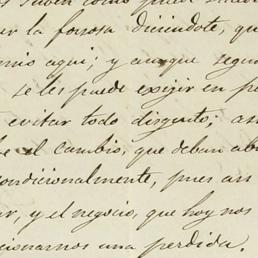 suben como
ar la forzosa diciendote, qu
mio aqui; y aunque segun
se les puede exigir en pe
evitar todo disgusto; as
el cambio, que deban ab
condicionalmente, pues asi
ar, y el negocio, que hoy nos
cionarnos una perdida.